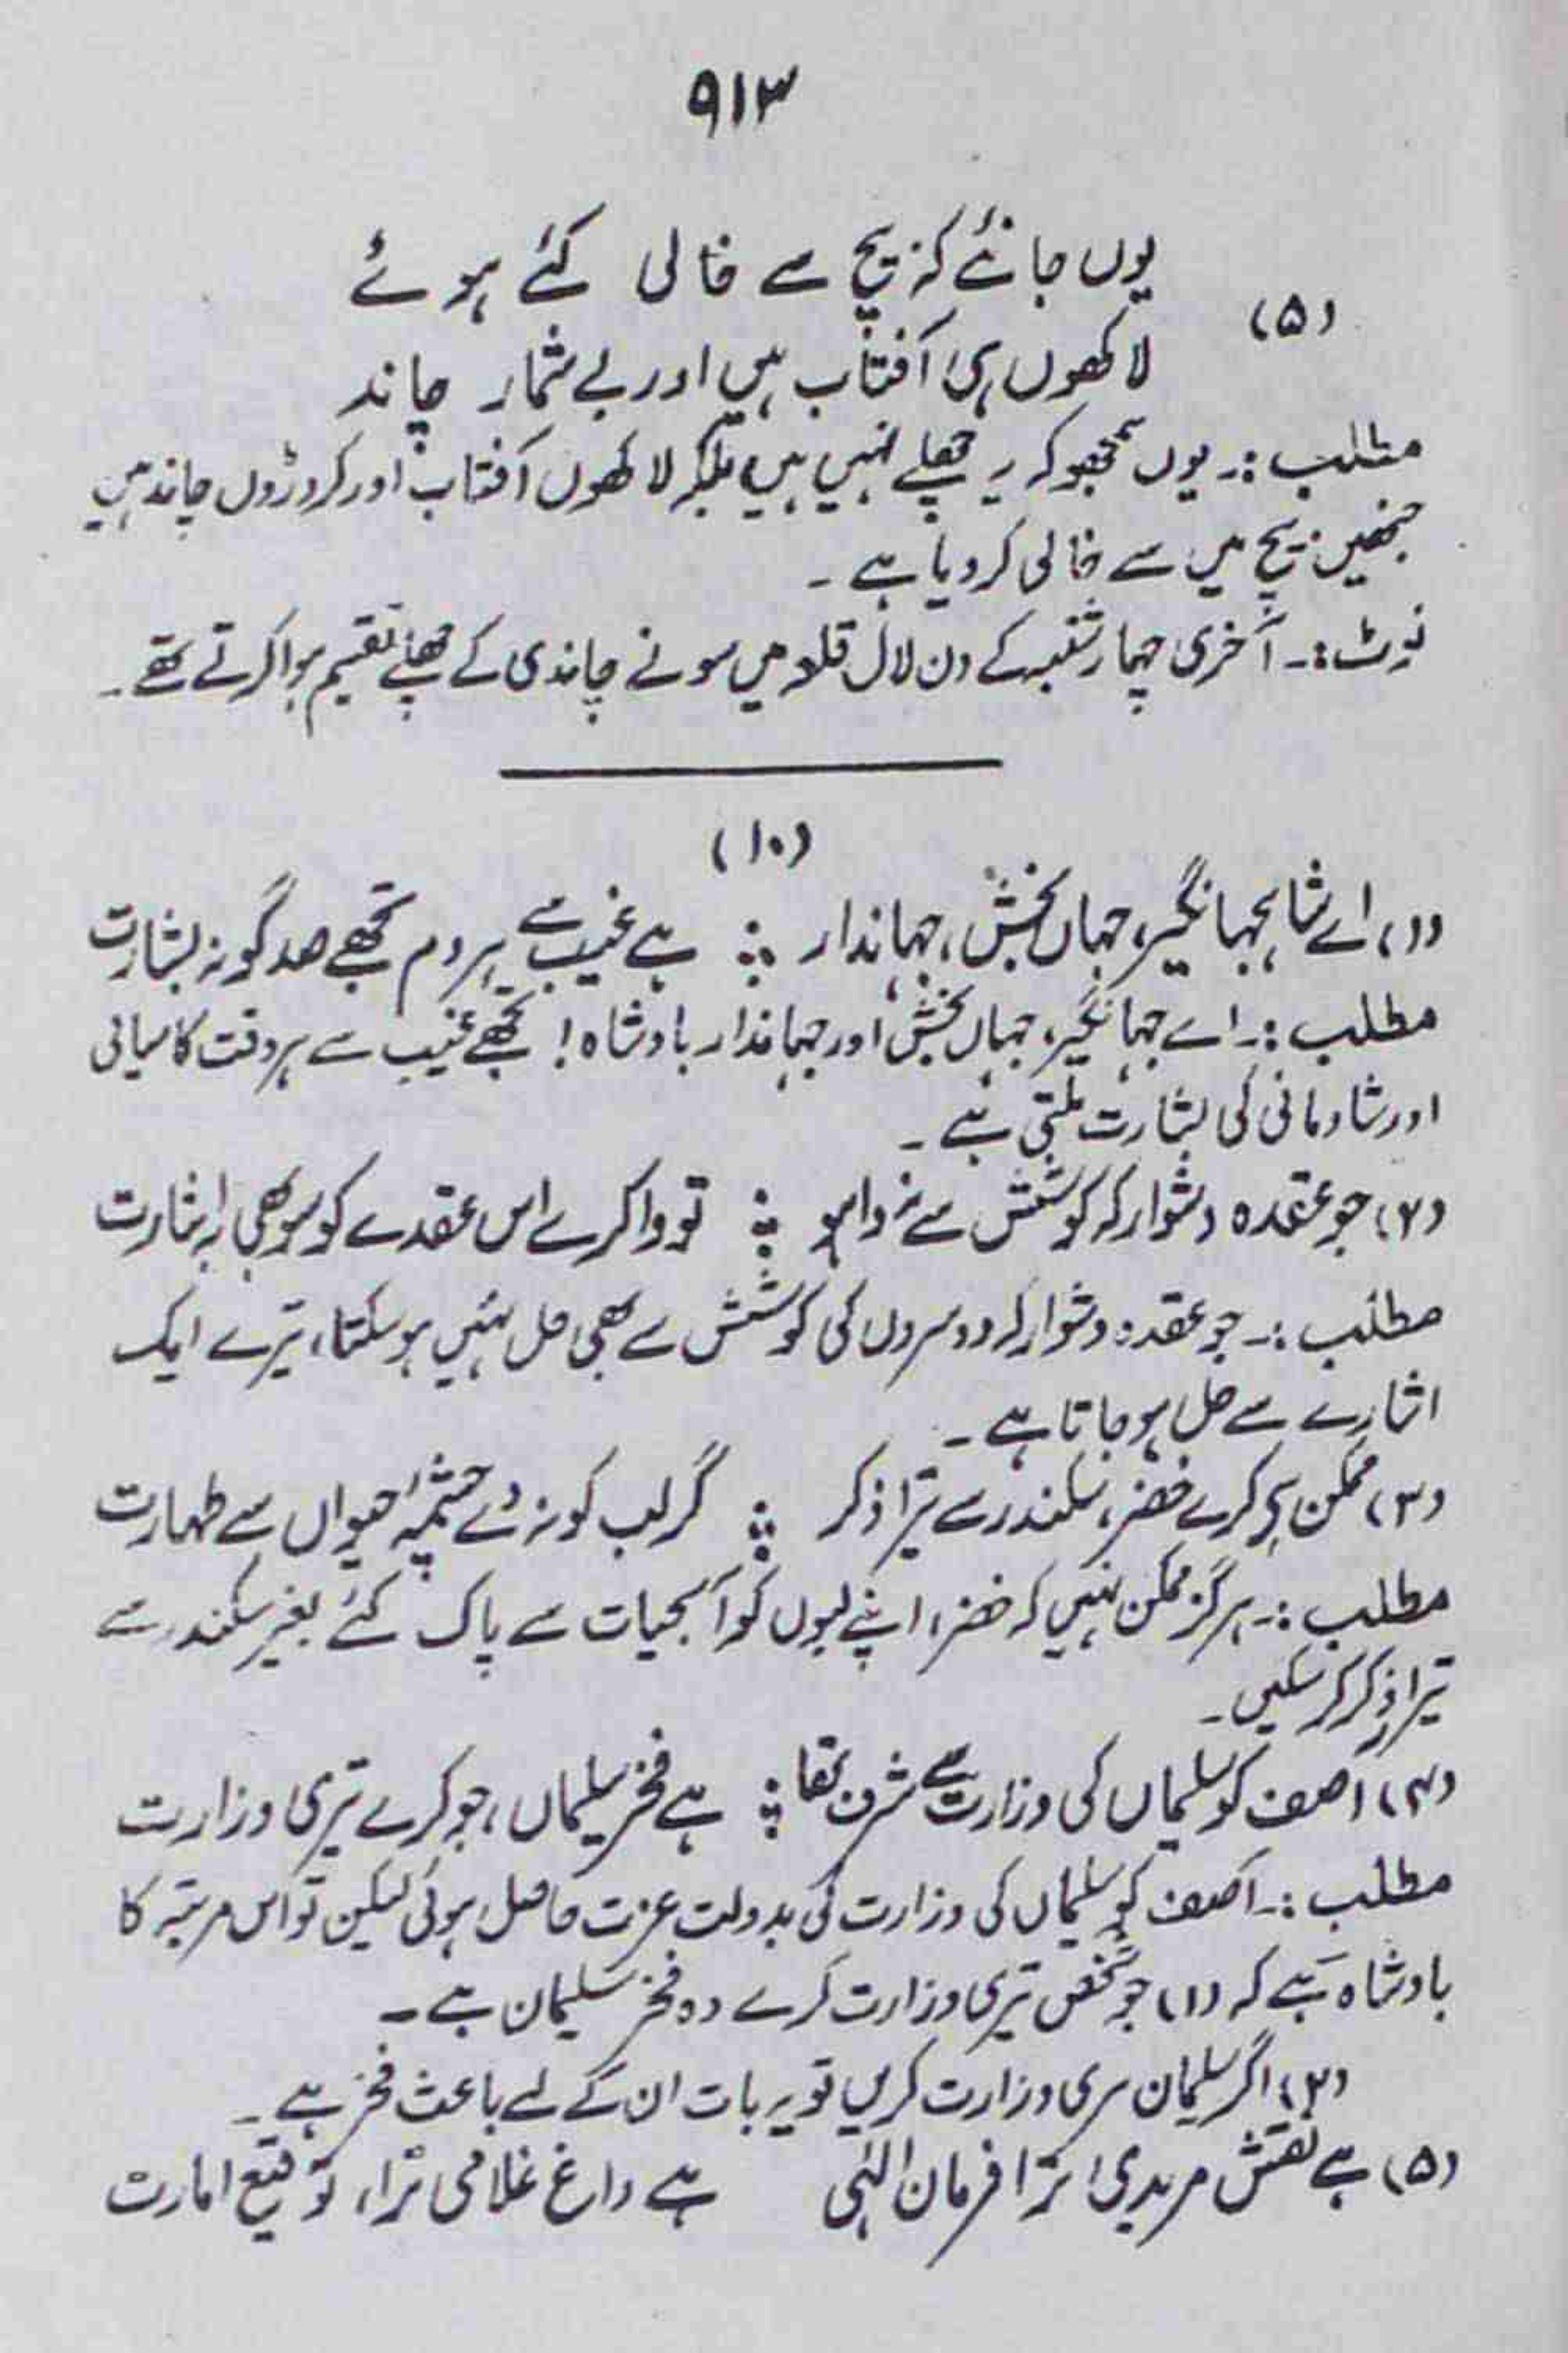 ۹۱۳
یوں جانئے کہ بیچ سے خالی کئے ہوئے
(۵)
لاکھوں ہی آفتاب ہیں اور بے شمار چاند
مطلب :۔ یوں سمجھو کہ یہ چھلے نہیں ہیں بلکہ لاکھوں آفتاب اور کروڑوں چاند ہیں
جنھیں بیچ میں سے خالی کر دیا ہے ۔
نوٹ :۔ آخری چہار شنبہ کے دن لال قلعہ میں سونے چاندی کے چھلے تقسیم ہوا کرتے تھے ۔
(۱۰)
(۱) اے شاہجہانگیر، جہاں بخش، جہاندار ؞ ہے غیب سے ہر دم تجھے صد گونہ بشارت
مطلب :۔ اے جہانگیر، جہاں بخش اور جہاندار بادشاہ! تجھے غیب سے ہر وقت کامیابی
اور شادمانی کی بشارت ملتی ہے ۔
(۲) جو عقدہ دشوار کہ کوشش سے نہ وا ہو ؞ تو وا کرے اس عقدے کو سو بھی بہ اشارت
مطلب :۔ جو عقدہ دشوار کہ دوسروں کی کوشش سے بھی حل نہیں ہو سکتا، تیرے ایک
اشارے سے حل ہو جاتا ہے ۔
(۳) ممکن ہے کرے خضر، سکندر سے ترا ذکر ؞ گر لب کو نہ دے چشمۂ حیواں سے طہارت
مطلب :۔ ہرگز ممکن نہیں کہ خضر، اپنے لبوں کو آبحیات سے پاک کئے بغیر سکندر سے
تیرا ذکر کر سکیں ۔
(۴) آصف کو سلیماں کی وزارت سے شرف تھا ؞ ہے فخر سلیماں، جو کرے تیری وزارت
مطلب :۔ آصف کو سلیماں کی وزارت کی بدولت عزت حاصل ہوئی لیکن تو اس مرتبہ کا
بادشاہ ہے کہ (۱) جو شخص تیری وزارت کرے وہ فخر سلیمان ہے ۔
(۲) اگر سلیمان تیری وزارت کریں تو یہ بات ان کے لیے باعث فخر ہے ۔
(۵) ہے نقش مریدی ترا فرمان الٰہی ہے داغ غلامی ترا، توقیع امارت